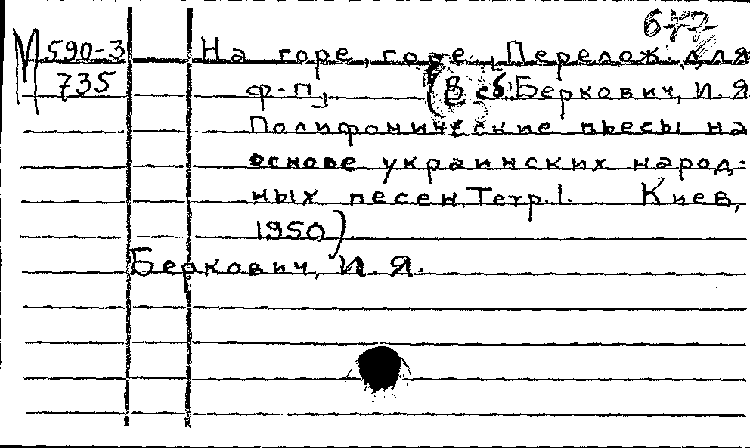 М 590-3 На горе, горе. Перелож. для
735 ф-п. (В сб: Беркович, И. Я
Полифонические пьесы на
основе украинских народ-
ных песен. Тетр. 1. Киев,
1950)
Беркович, И. Я.